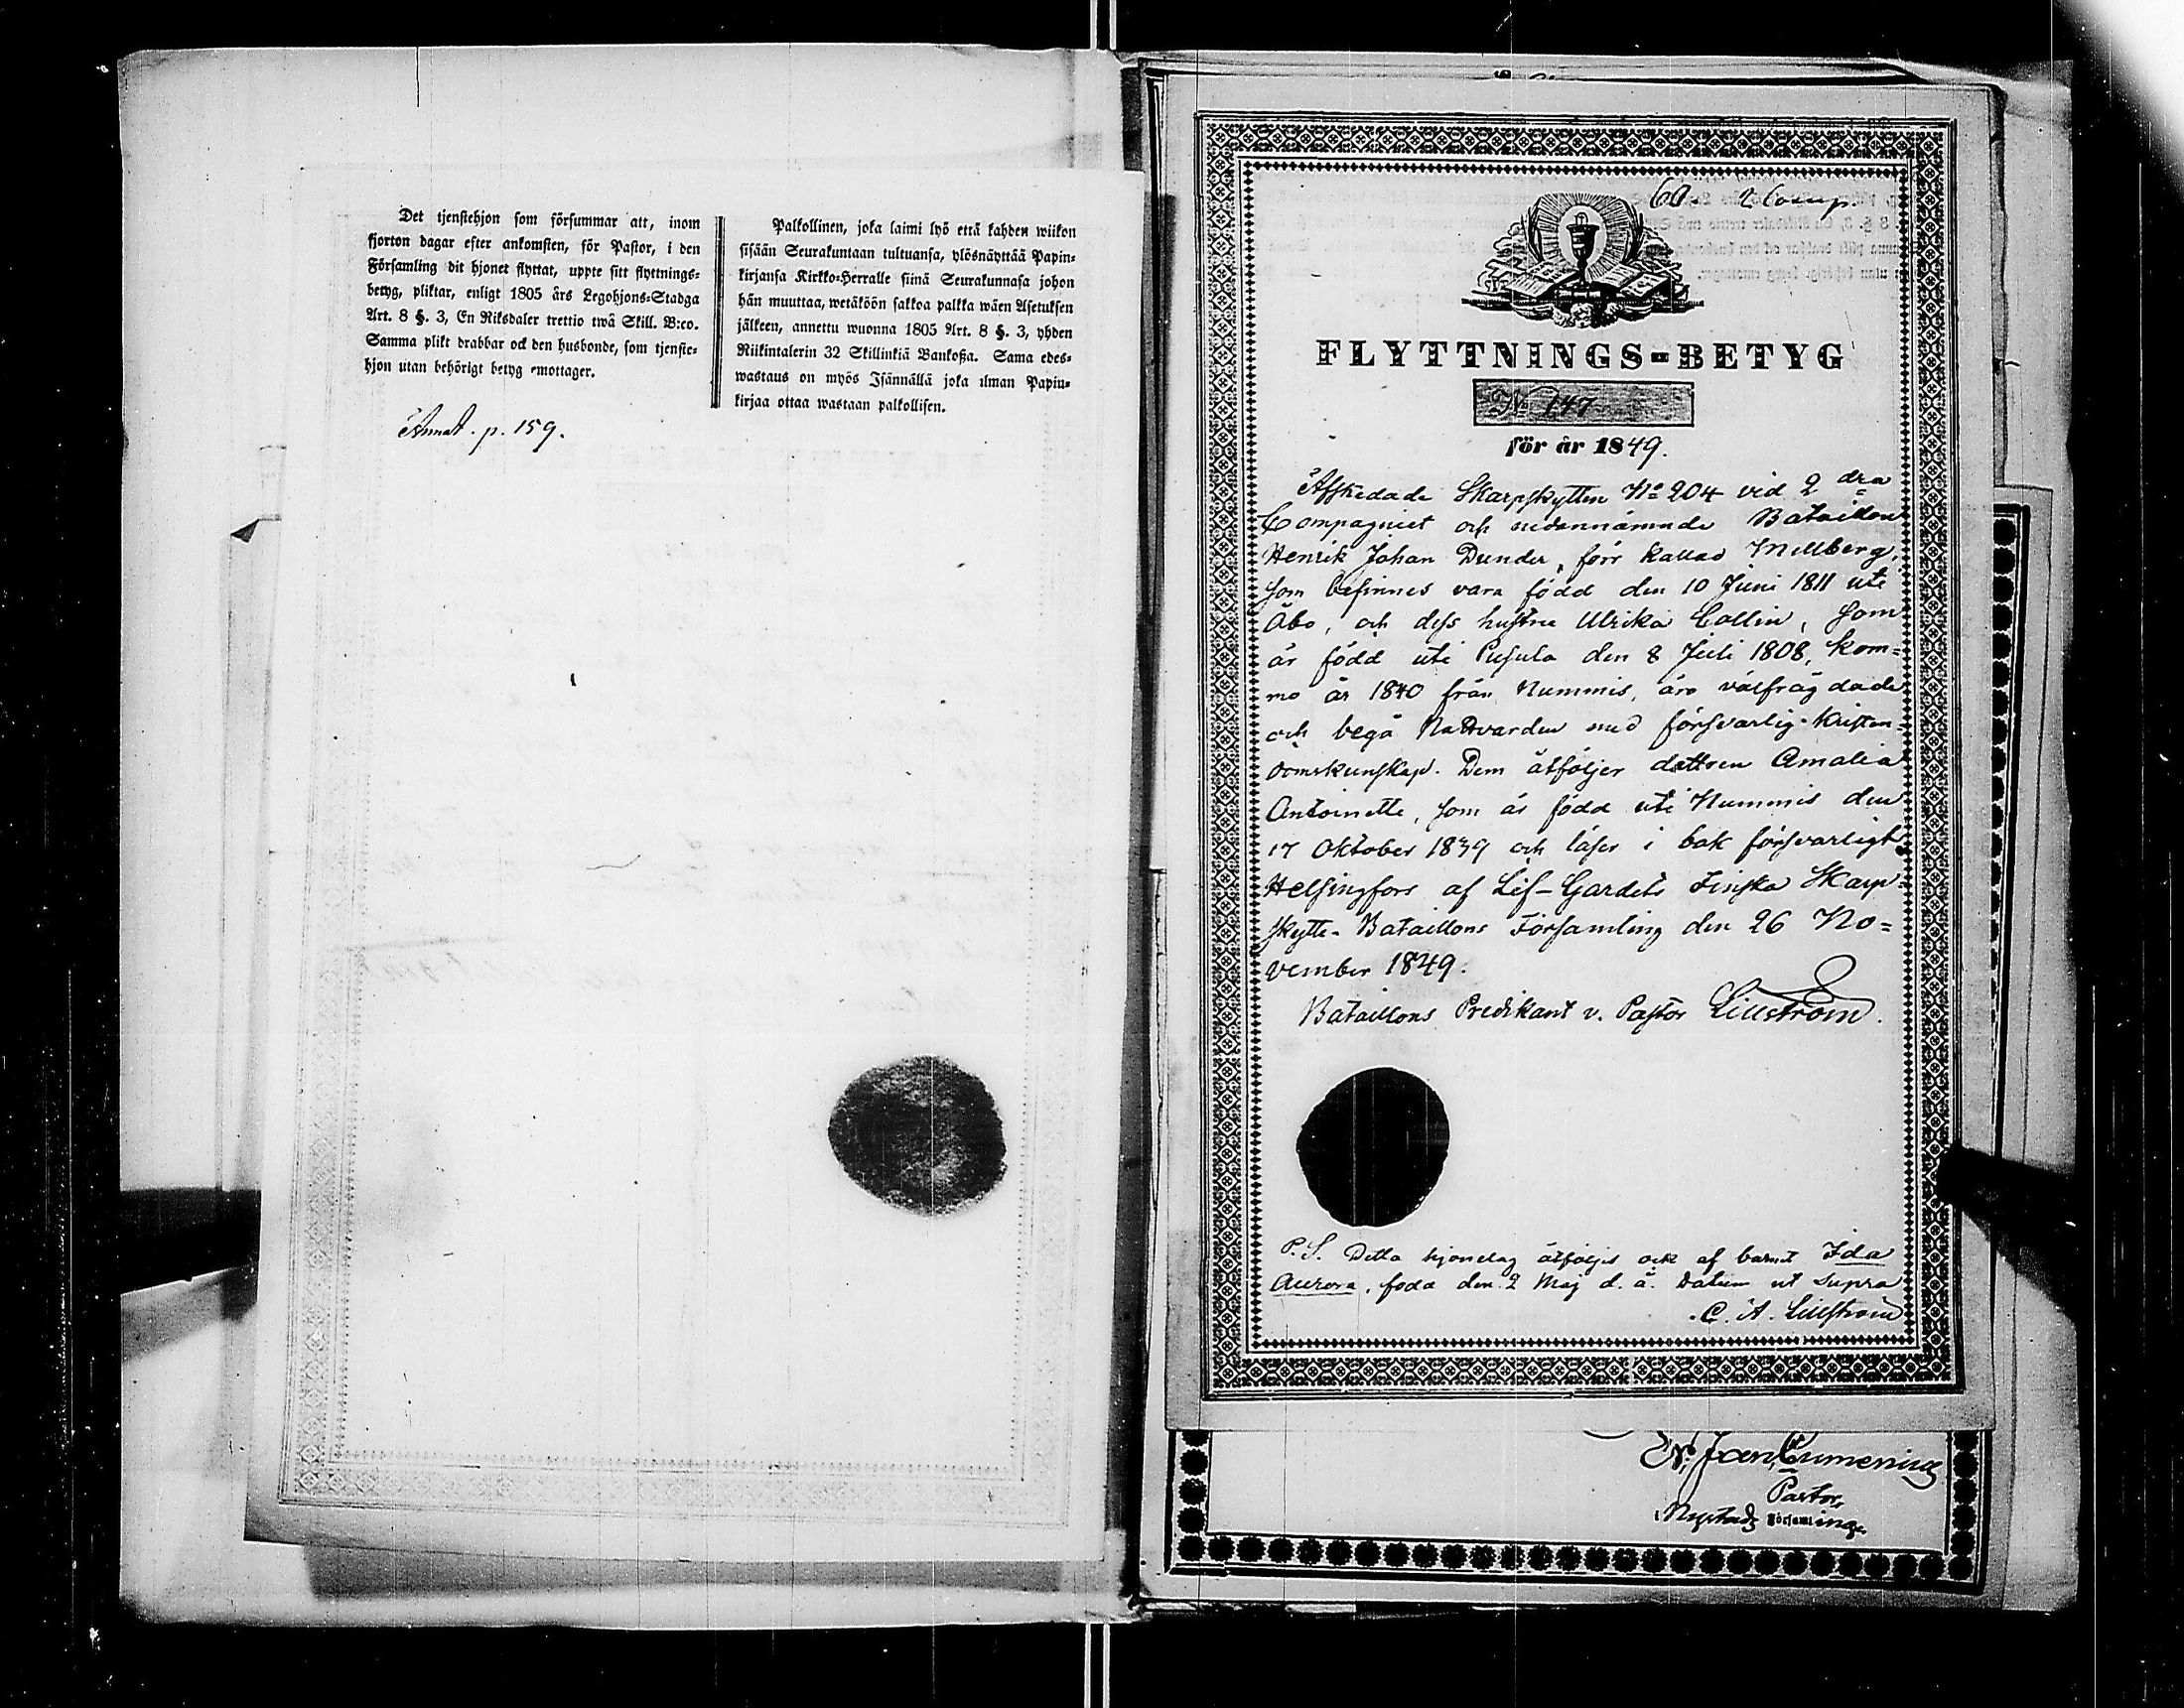 Det tjenstehjon som försummar att, inom
fjorton dagar efter ankomsten, för Pastor, i den
Församling dit hjonet flyttat, uppte sitt flyttnings-
betyg, pliktar, enligt 1805 års Legohjons-Stadga
Art. 8 §. 3, En Riksdaler trettio twå Skill. B:co.
Samma plikt drabbar ock den husbonde, som tjenste-
hjon utan behörigt betyg emottager.
Palkollinen, joka laimi lyö että kahden wiikon
sisään Seurakuntaan tultuansa, ylösnäyttää Papin-
kirjansa Kirkko-Herralle siinä Seurakunnasa johon
hän muuttaa, wetäköön sakkoa palkka wäen Asetuksen
jälkeen, annettu wuonna 1805 Art. 8 §. 3, yhden
Riikintalerin 32 Skillinkiä Bankoßa. Sama edes-
wastaus on myös Isännällä joka ilman Papin-
kirjaa ottaa wastaan palkollisen.
Annat. p. 159.
FLYTTNINGS-BETYG
No 147
för år 1849.
Afskedade Skarpskytten No 204 vid 2 dra
Compagniet och nedannämnde Bataillon
Henrik Johan Dunder, förr kallad Millberg,
som befinnes vara född den 10 Juni 1811 uti
Åbo, och dess hustru Ulrika Collin, som
är född uti Pusula den 8 Juli 1808, kom=
mo år 1840 från Nummis, äro välfrägdade
och begå Nattvarden med försvarlig Kristen=
domskunskap. Dem åtföljer dottren Amalia
Antoinette, som är född uti Nummis den
17 Oktober 1839 och läser i bok försvarligt.
Helsingfors af Lif-Gardets Finska Skarp=
skytte-Bataillons Församling den 26 No=
vember 1849.
Bataillons Predikant v. Pastor Lillström.
P.S. Detta hjonelag åtföljes ock af barnet Ida
Aurora, född den 2 Maj d. å. Datum ut Supra
C. A. Lillström
Pastor
Nystads Församlings